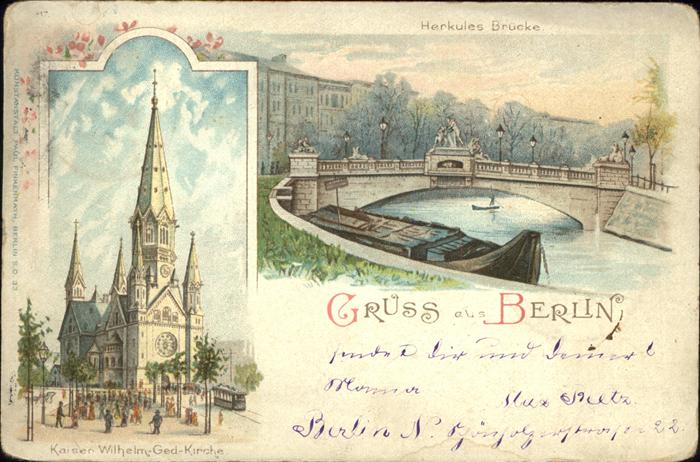 Herkules Brücke.
KUNSTANSTALT PAUL FINKENRATH, BERLIN S.O. 33
GRUSS aus BERLIN,
sendet Dir und Deiner
Mama Max
Berlin N. Schönholzerstrasse 22.
Kaiser Wilhelm-Ged-Kirche